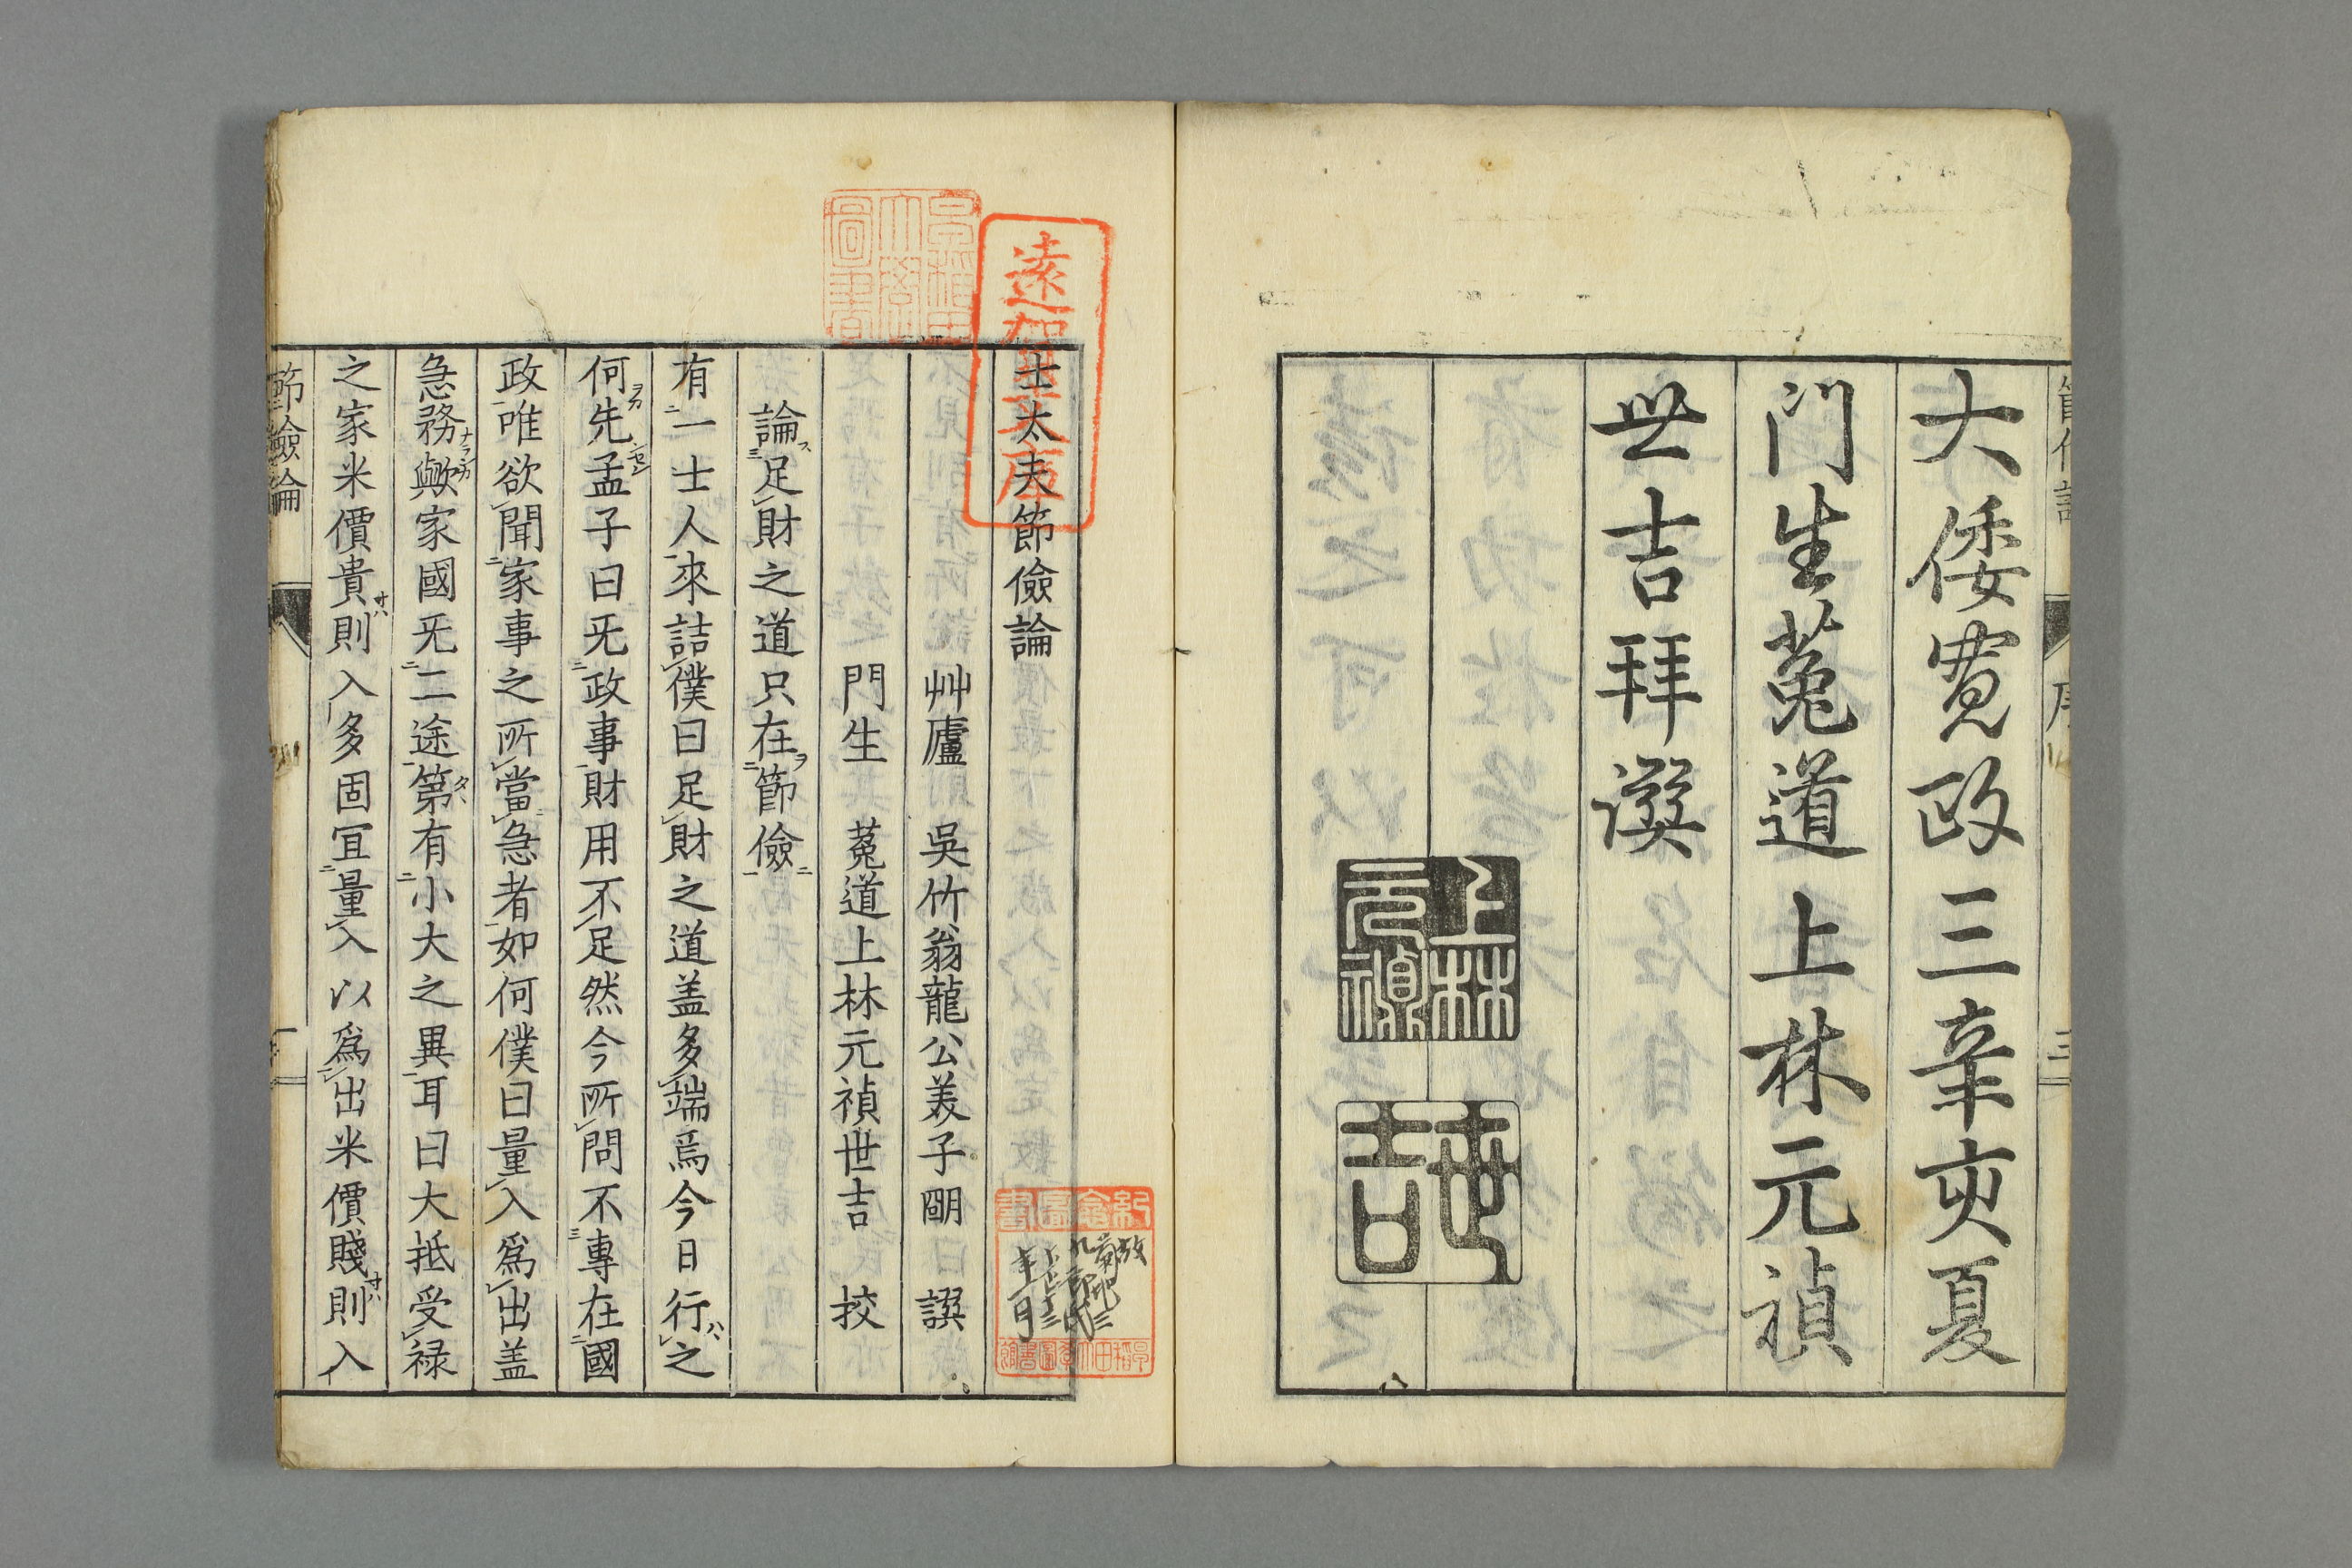 大倭寛政三辛亥夏
門生菟道上林元禎
世吉拜撰
上林元禎
世吉
士太夫節儉論
艸廬　吳竹翁龍公美子朙　譔
門生　菟道上林元禎世吉　挍
論足財之道只在節儉
有一士人來詰僕曰足財之道盖多端焉今日行之
何先孟子曰旡政事財用不足然今所問不專在國
政唯欲聞家事之所當急者如何僕曰量入爲出盖
急務歟家國旡二途第有小大之異耳曰大抵受禄
之家米價貴則入多固宜量入以爲出米價賤則入
節儉論